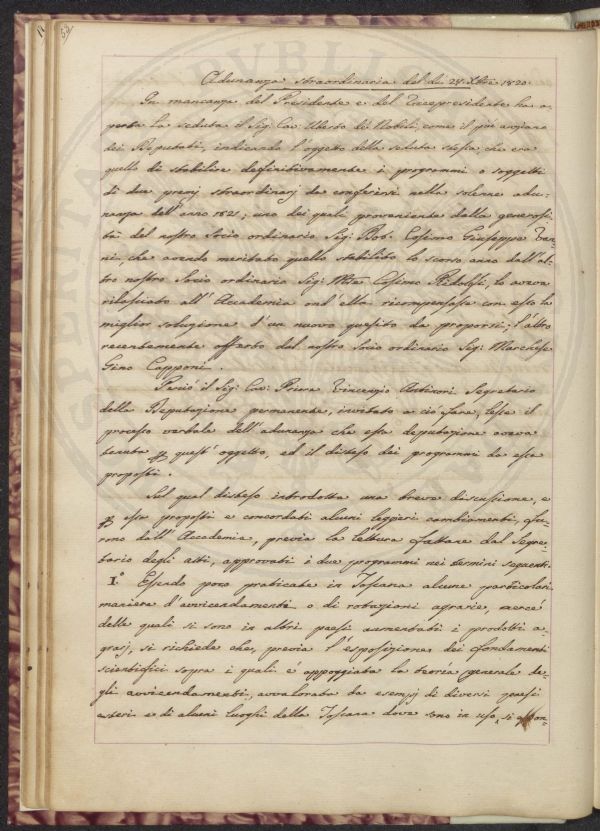 53
Adunanza straordinaria del dì 28. Xbre 1820.
In mancanza del Presidente e del Vicepresidente ha a-
perta la seduta il Sig. Cav. Uberto de' Nobili, come il più anziano
dei Deputati, indicando l'oggetto della seduta stessa, che era
quello di stabilire definitivamente i programmi o soggetti
di due premj straordinarj da conferirsi nella solenne adu-
nanza dell'anno 1821; uno dei quali proveniente dalla generosi-
tà del nostro Socio ordinario Sig. Dot. Cosimo Giuseppe Van-
ni, che avendo meritato quello stabilito lo scorso anno dall'al-
tro nostro Socio ordinario Sig. Mse. Cosimo Ridolfi, lo aveva
rilasciato all'Accademia ond'ella ricompensasse con esso la
miglior soluzione d'un nuovo quesito da proporsi; l'altro
recentemente offerto dal nostro Socio ordinario Sig. Marchese
Gino Capponi.
Perciò il Sig. Cav. Priore Vincenzio Antinori Segretario
della Deputazione permanente, invitato a ciò fare, lesse il
processo verbale dell'adunanza che essa deputazione aveva
tenuta quest'oggetto, ed il disteso dei programmi da essa
proposti.
Sul qual disteso introdotta una breve discussione, e
essa proposti e concordati alcuni leggieri cambiamenti, fu-
rono dall'Accademia, previa la lettura fattane dal Segre-
tario degli atti, approvati i due programmi nei termini seguenti.
1.° Essendo poco praticate in Toscana alcune particolari
maniere d'avvicendamenti o di rotazioni agrarie, mercè
delle quali si sono in altri paesi aumentati i prodotti a-
grarj, si richiede che, previa l'esposizione dei fondamenti
scientifici sopra i quali è appoggiata la teoria generale de-
gli avvicendamenti, avvalorata da esempj di diversi paesi
esteri e di alcuni luoghi della Toscana dove sono in uso, si